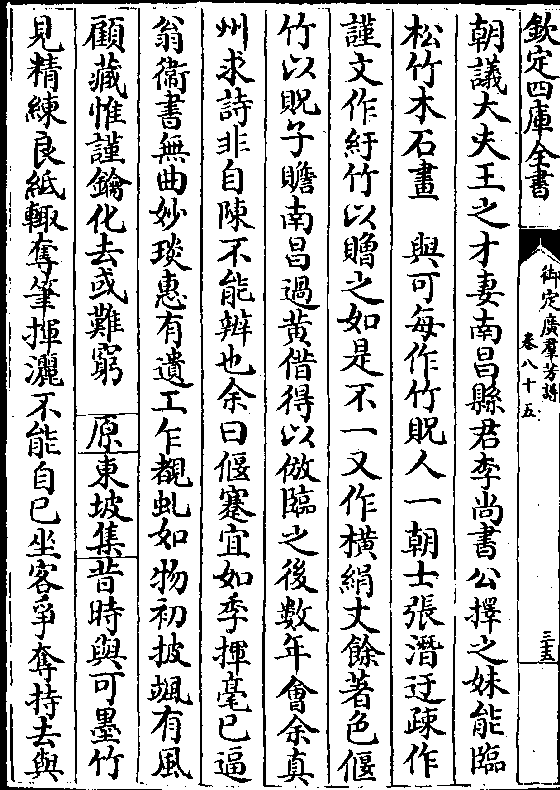 欽定四庫全書
御定廣羣芳譜
卷八十五
三五
朝議大夫王之才妻南昌縣君李尚書公擇之妹能臨
松竹木石畫　與可每作竹貺人一朝士張潛迂疎作
謹文作紆竹以贈之如是不一又作橫絹丈餘著色偃
竹以貺子瞻南昌過黃借得以倣臨之後數年會余真
州求詩非自陳不能辨也余曰偃蹇宜如季揮毫已逼
翁衞書無曲妙琰惠有遺工乍覩虬如物初披颯有風
顧藏惟謹鑰化去或難窮　原東坡集昔時與可墨竹
見精練良紙輙奪筆揮灑不能自已坐客爭奪持去與